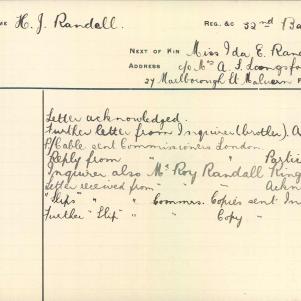 ME H. J. Randell. REG. &c 32nd Ba
NEXT OF KIN Miss Ida E. Rande
ADDRESS c/o Mrs A. J. Longsfor
27 Marlborough St Malvern
Letter acknowledged.
Further letter from Inquirer (brother). A
P/Cable sent Commissioners London.
Reply from " " Partic
Inquirer also Mr Roy Randall King
Letter received from " " Ackn
"Slips" " " Commrs. Copies sent In
Further "Slip" " " Copy "